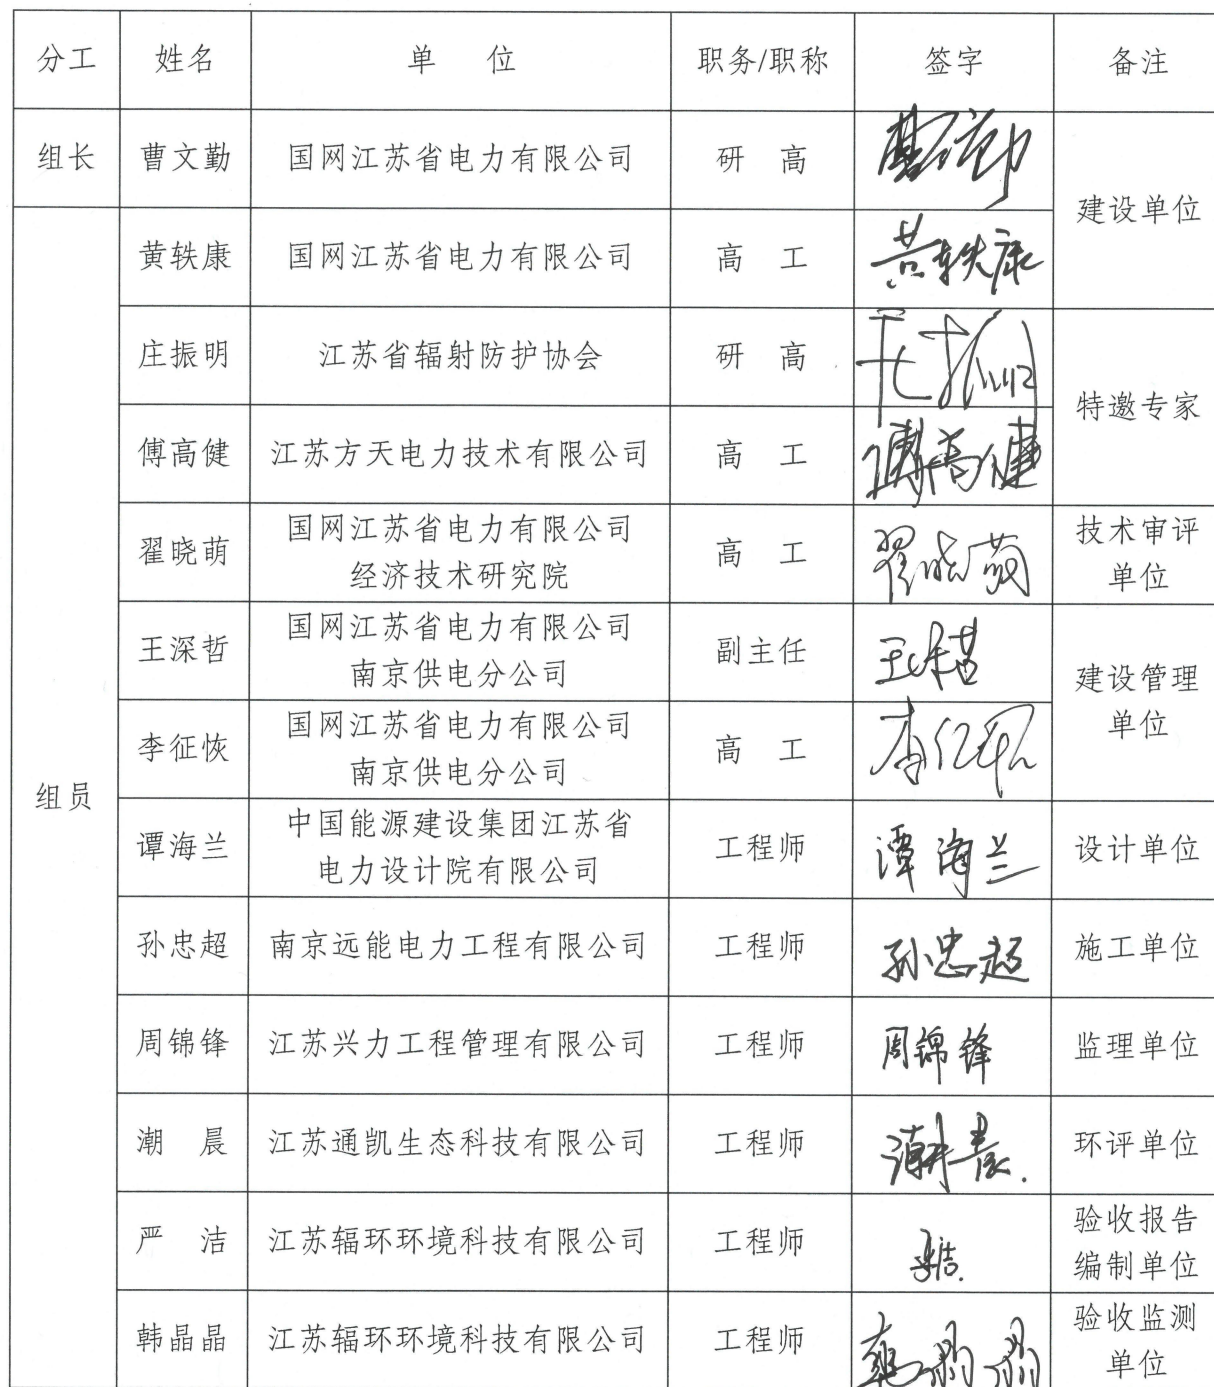 分工 姓名 单 位 职务/职称 签字 备注
组长 曹文勤 国网江苏省电力有限公司 研 高 建设单位
组员
黄轶康 国网江苏省电力有限公司 高 工 黄轶康
庄振明 江苏省辐射防护协会 研 高 特邀专家
傅高健 江苏方天电力技术有限公司 高 工 傅高健
翟晓萌 国网江苏省电力有限公司
经济技术研究院 高 工 翟晓萌 技术审评
单位
王深哲 国网江苏省电力有限公司
南京供电分公司 副主任 建设管理
单位
李征恢 国网江苏省电力有限公司
南京供电分公司 高 工
谭海兰 中国能源建设集团江苏省
电力设计院有限公司 工程师 谭海兰 设计单位
孙忠超 南京远能电力工程有限公司 工程师 孙忠超 施工单位
周锦锋 江苏兴力工程管理有限公司 工程师 周锦锋 监理单位
潮 晨 江苏通凯生态科技有限公司 工程师 潮晨 环评单位
严 洁 江苏辐环环境科技有限公司 工程师 验收报告
编制单位
韩晶晶 江苏辐环环境科技有限公司 工程师 韩晶晶 验收监测
单位